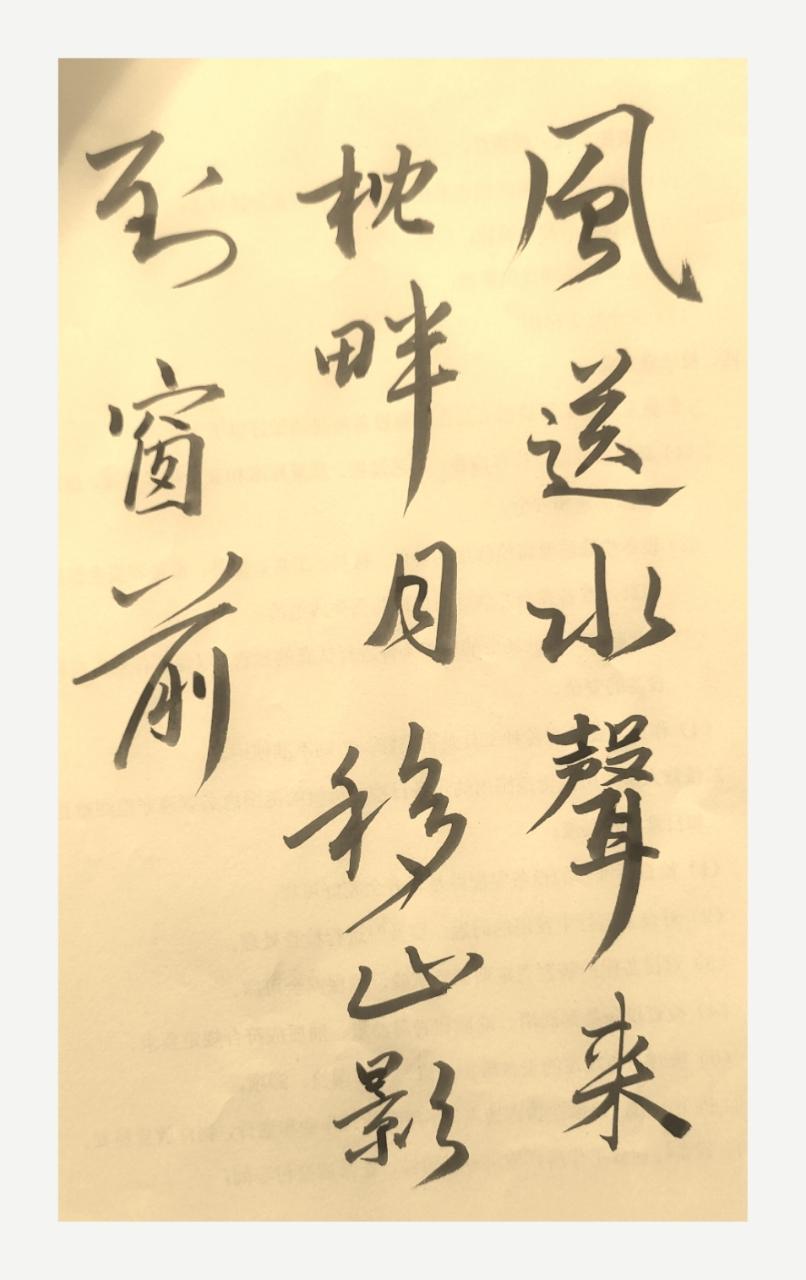 風送水聲来
枕畔月移山影
到窗前